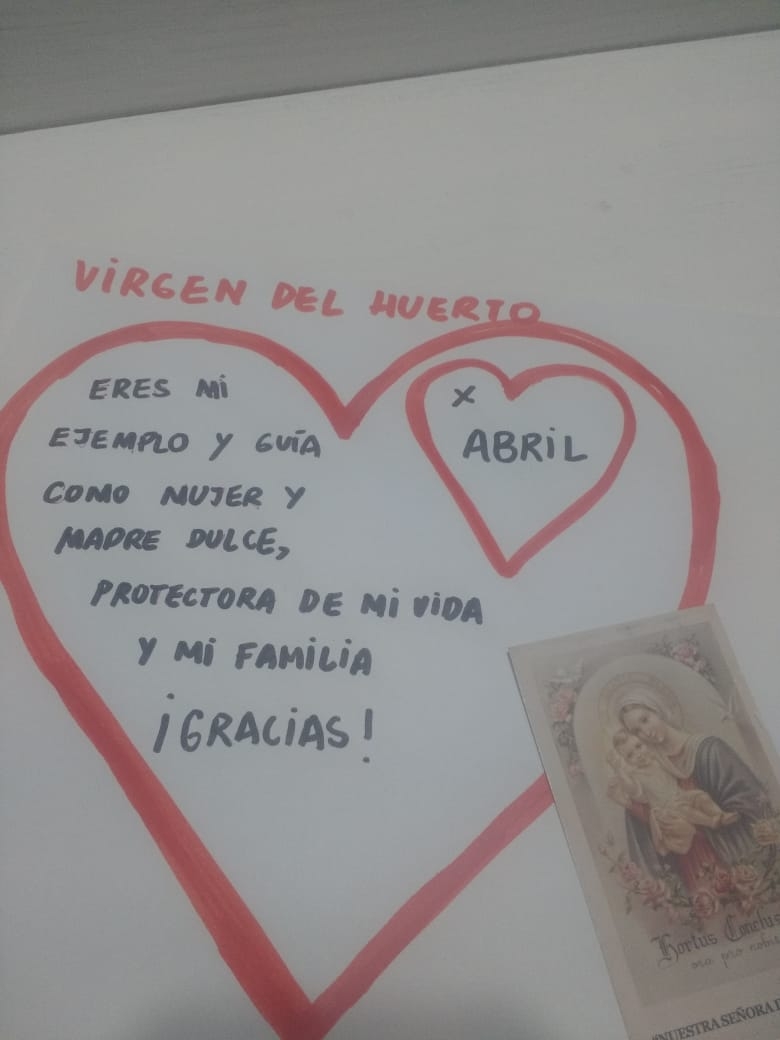 VIRGEN DEL HUERTO
ERES MI
EJEMPLO Y GUÍA
COMO MUJER Y
MADRE DULCE,
PROTECTORA DE MI VIDA
Y MI FAMILIA
¡GRACIAS!
X
ABRIL
Hortus Conclus
ora pro nobis
"NUESTRA SEÑORA D